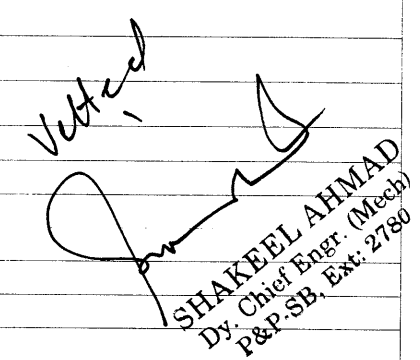 Vetted
SHAKEEL AHMAD
Dy. Chief Engr. (Mech)
P&P-SB, Ext: 2780